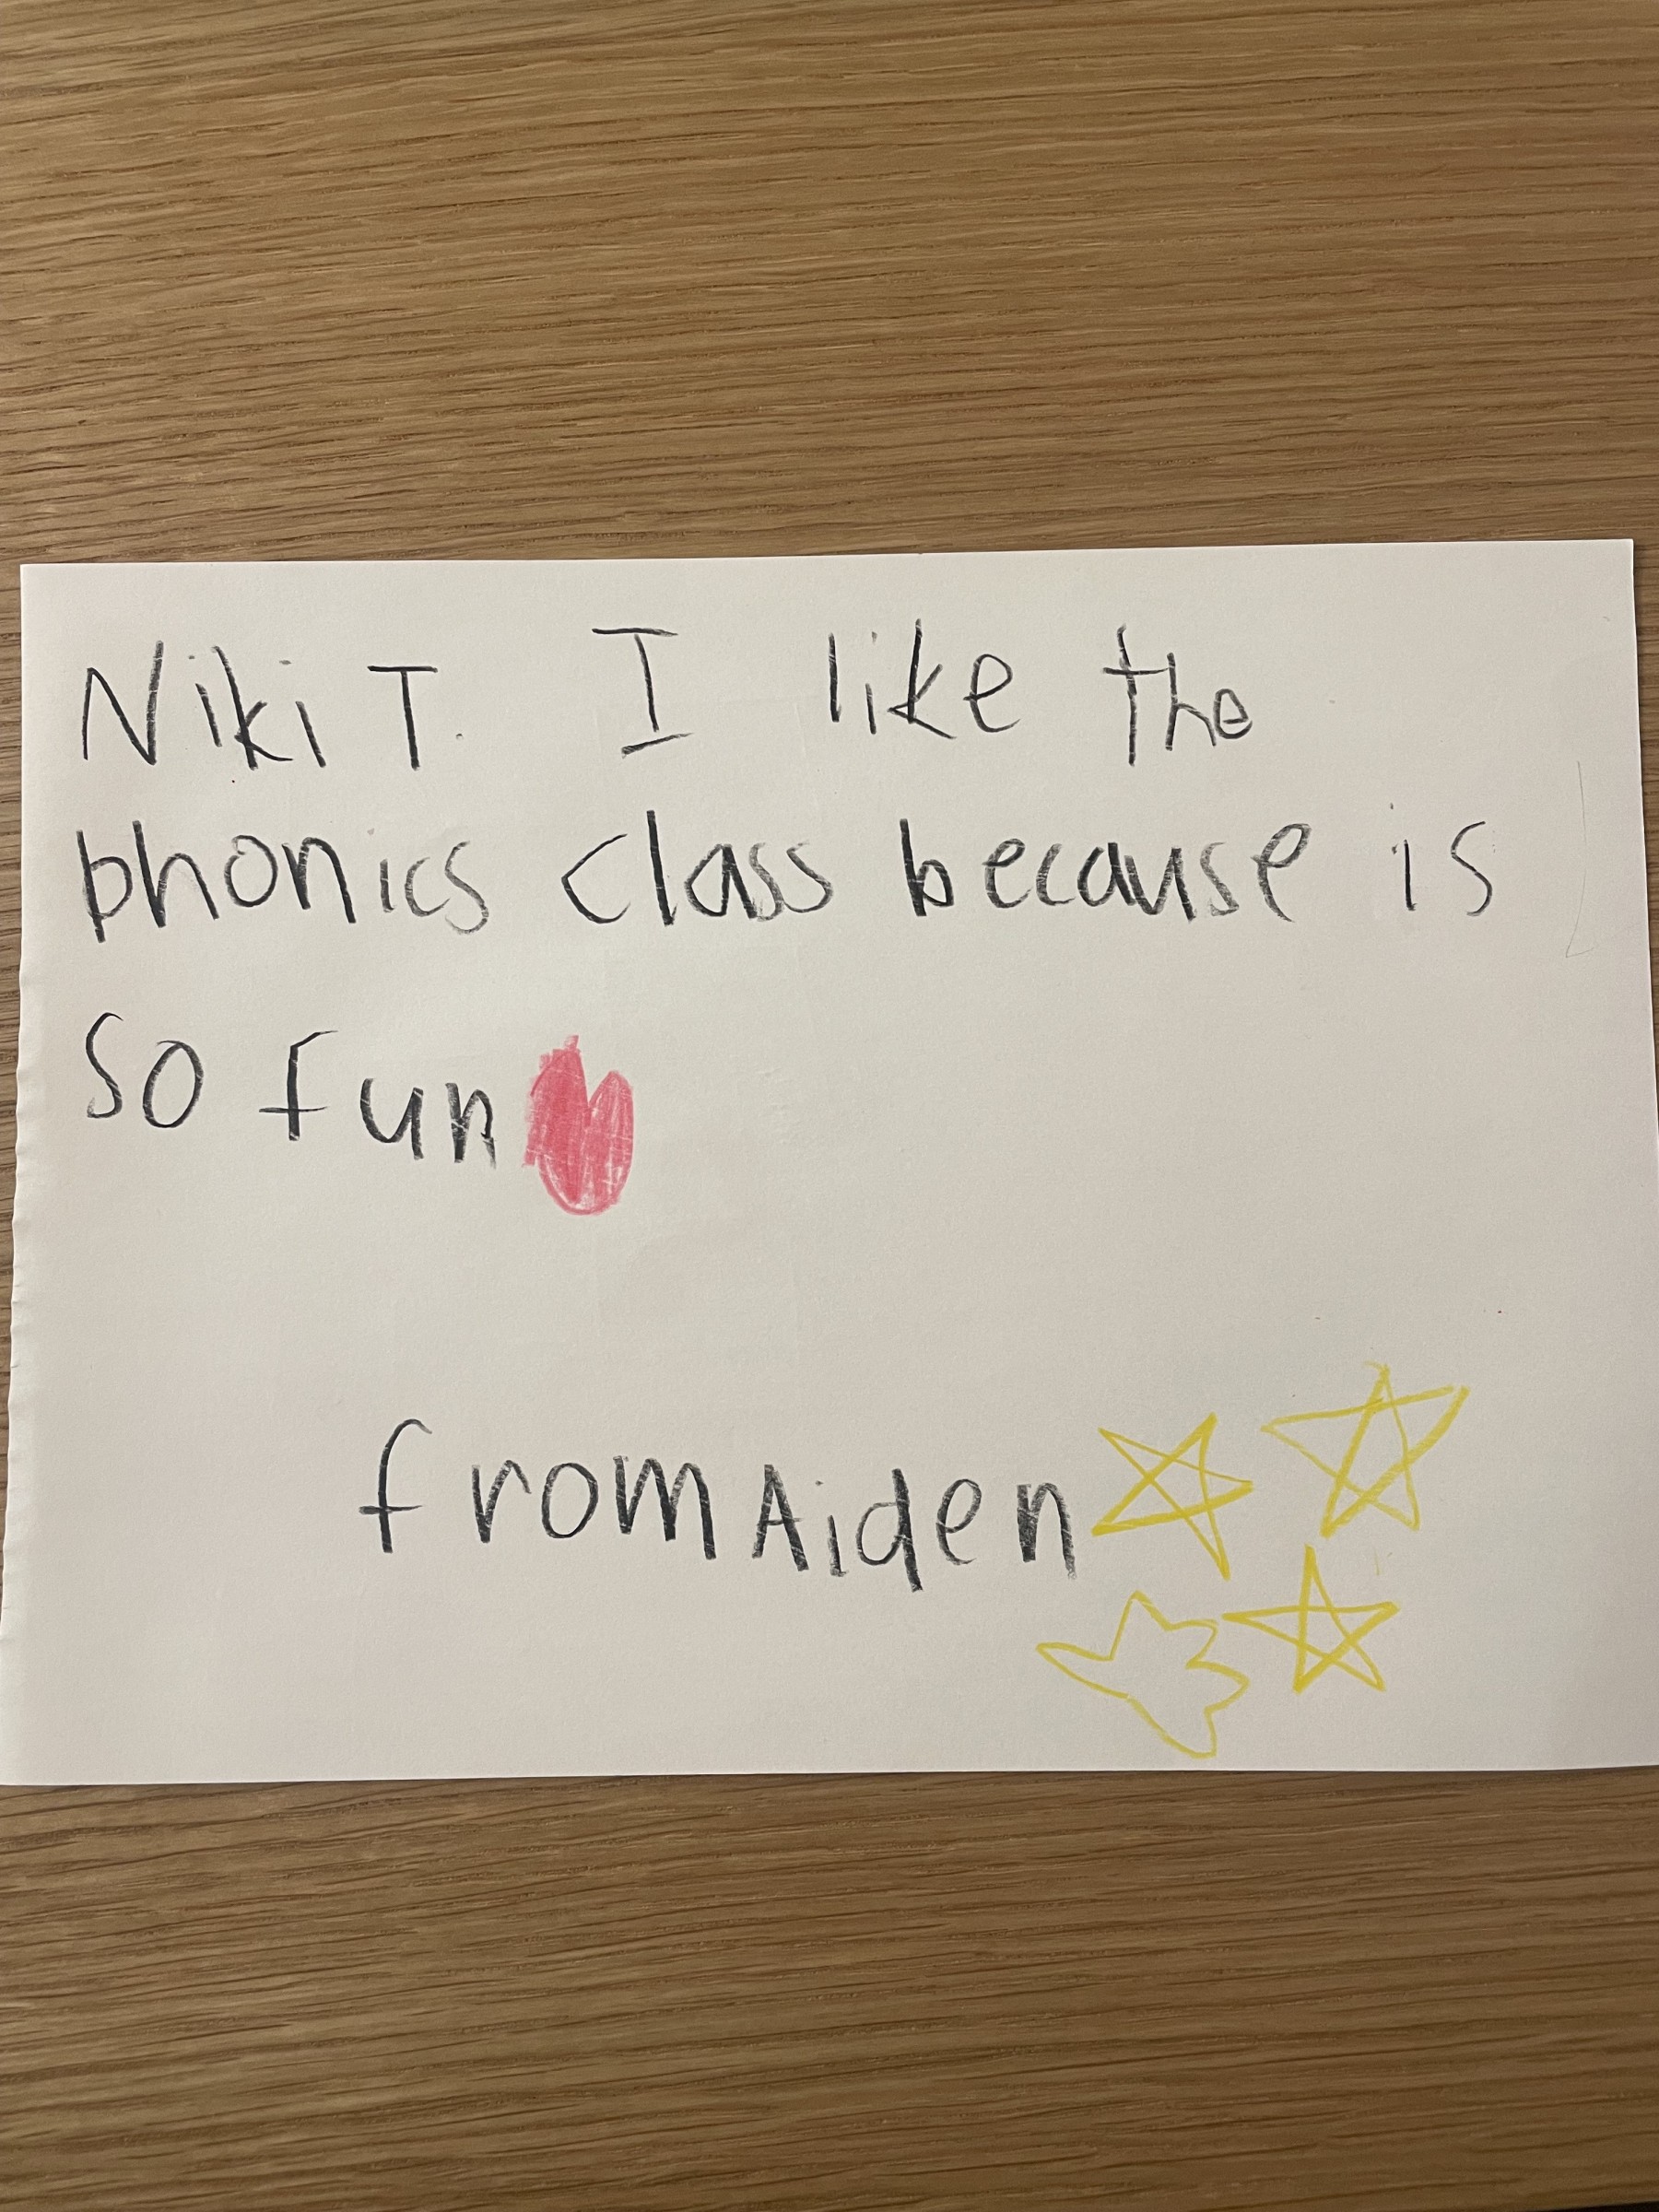 Niki T. I like the
phonics class because is
so fun
from Aiden